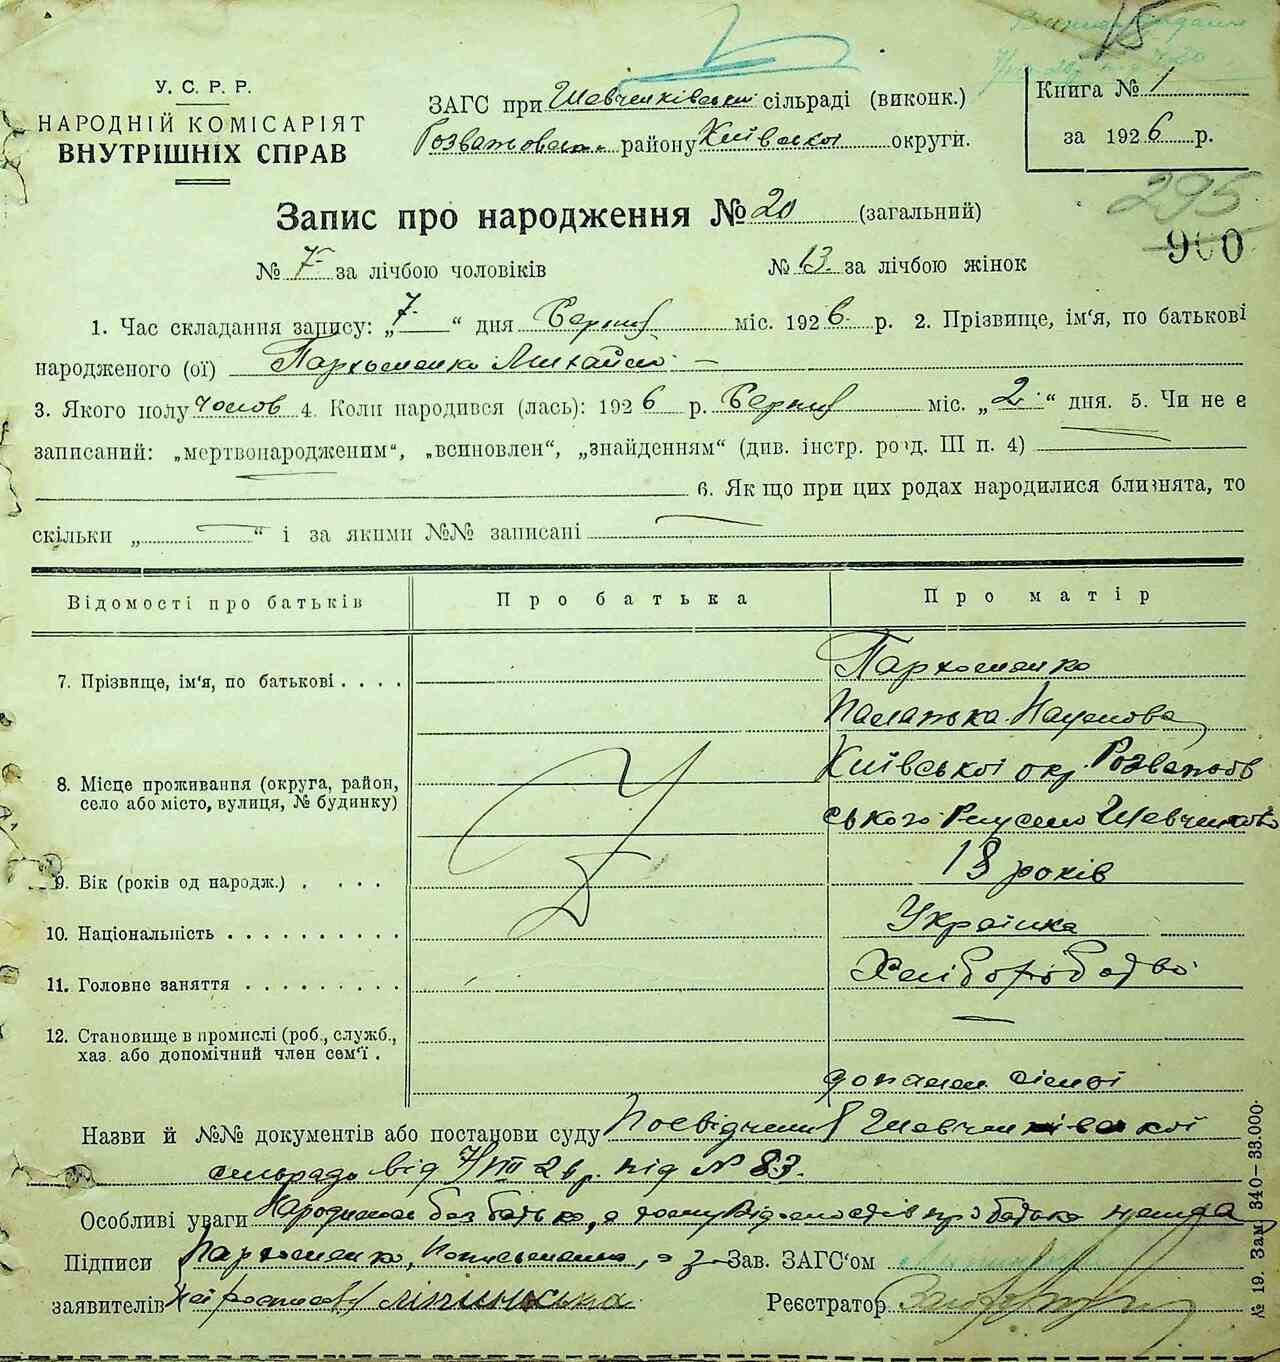 15
У. С. Р. Р.
НАРОДНІЙ КОМІСАРІЯТ
ВНУТРІШНІХ СПРАВ
ЗАГС при Шевченківській сільраді (виконк.)
району Київської округи.
Книга № 1
за 1926 р.
295
900
Запис про народження № 20 (загальний)
№ 7 за лічбою чоловіків
№ 13 за лічбою жінок
1. Час складання запису: „7“ дня Серпня міс. 1926 р. 2. Прізвище, ім'я, по батькові
народженого (ої) Пархоменко Михайло
3. Якого полу чолов 4. Коли народився (лась): 1926 р. Серпня міс. „2“ дня. 5. Чи не є
записаний: „мертвонародженим“, „всиновлен“, „знайденням“ (див. інстр. розд. III п. 4)
6. Якщо при цих родах народилися близнята, то
скільки „ “ і за якими №№ записані
Відомості про батьків
Про батька
Про матір
7. Прізвище, ім'я, по батькові . . . .
Пархоменко
Наумова
8. Місце проживання (округа, район,
село або місто, вулиця, № будинку)
Київської окр. Розважів
ського Р-ну село Шевченково
9. Вік (років од народж.) . . . .
18 років
10. Національність . . . . . . . . . .
Українка
11. Головне заняття . . . . . . . . .
Хліборобство
12. Становище в промислі (роб., служб.,
хаз. або допомічний член сем'ї .
допом. сімьі
Назви й №№ документів або постанови суду Посвідчення Шевченківської
сільради від 7/VIII 26 р. під № 83.
Особливі уваги Народился без батька, а тому відомостів про батька нема
Підписи Пархоменко, з Зав. ЗАГС'ом
заявителів
Реєстратор
№ 19. Зам. 340—33.000.